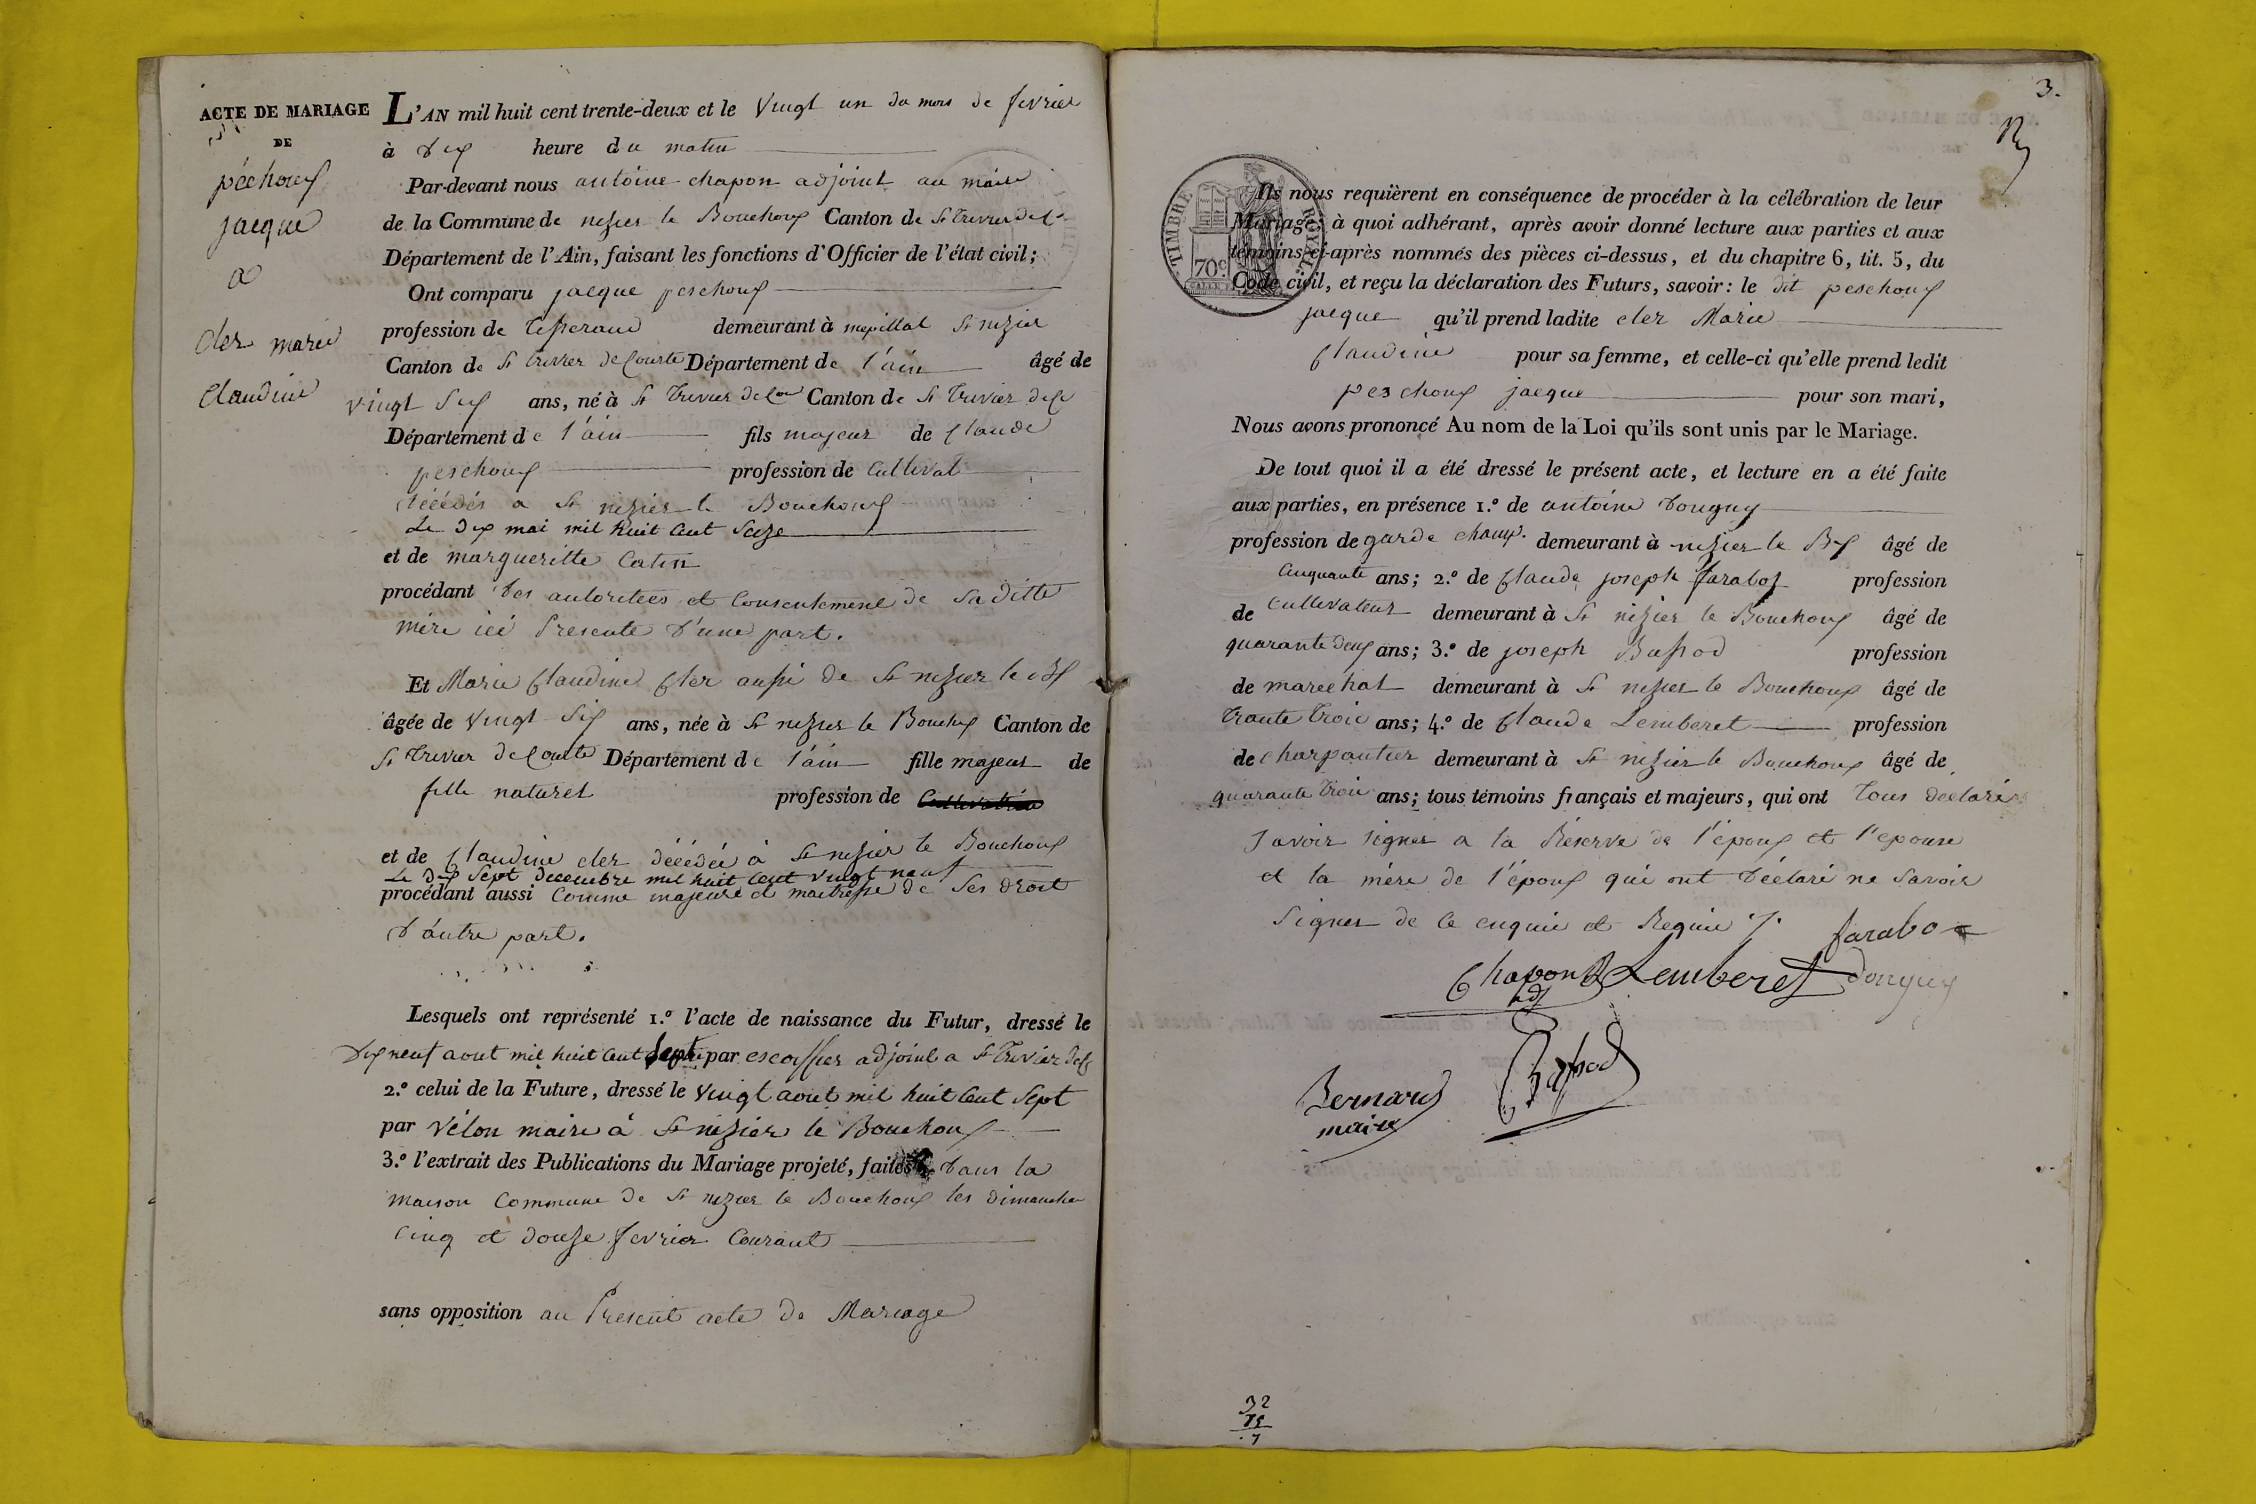 ACTE DE MARIAGE
DE
péchoux
jacque
a
cler marie
claudine
L'AN mil huit cent trente-deux et le vingt un du mois de fevrier
à dix heure du matin
Par-devant nous antoine chapon adjoint au maire
de la Commune de nizier le Bouchoux Canton de St trivier de C
Département de l'Ain, faisant les fonctions d'Officier de l'état civil;
Ont comparu jacque peschoux
profession de tisserand demeurant à mepillat St nizier
Canton de St trivier de Courte Département de l'ain âgé de
vingt six ans, né à St trivier de Cou Canton de St trivier de C
Département de l'ain fils majeur de Claude
peschoux profession de Cultivat
décédés a St nizier le Bouchoux
Le dix mai mil huit Cent Seize
et de margueritte Catin
procédant des autoritees et Consentement de Saditte
mère ici Presente d'une part.
Et Marie Claudine Cler aussi de St nizier le Bx
âgée de vingt Six ans, née à St nizier le Bouchx Canton de
St trivier de Courte Département de l'ain fille majeur de
fille naturel profession de
et de Claudine cler décédée à St nizier le Bouchoux
Le dix Sept decembre mil huit Cent vingt neuf
procédant aussi Comme majeure et maitresse de Ses droit
d'autre part.
Lesquels ont représenté 1.º l'acte de naissance du Futur, dressé le
dix neuf aout mil huit Cent Sept par escoffier adjoint a St trivier de C
2.º celui de la Future, dressé le vingt aout mil huit Cent Sept
par vélon maire à St nizier le Bouchoux
3.º l'extrait des Publications du Mariage projeté, faites dans la
maison Commune de St nizier le Bouchoux les dimanche
Cinq et douze fevrier Courant
sans opposition au Present acte de Mariage
3.
TIMBRE ROYAL
70c
Ils nous requièrent en conséquence de procéder à la célébration de leur
Mariage; à quoi adhérant, après avoir donné lecture aux parties et aux
témoins ci-après nommés des pièces ci-dessus, et du chapitre 6, tit. 5, du
Code civil, et reçu la déclaration des Futurs, savoir: le dit peschoux
jacque qu'il prend ladite cler Marie
Claudine pour sa femme, et celle-ci qu'elle prend ledit
peschoux jacque pour son mari,
Nous avons prononcé Au nom de la Loi qu'ils sont unis par le Mariage.
De tout quoi il a été dressé le présent acte, et lecture en a été faite
aux parties, en présence 1.º de antoine douguy
profession de garde champ. demeurant à nizier le Bx âgé de
Cinquante ans; 2.º de Claude joseph farabox profession
de Cultivateur demeurant à St nizier le Bouchoux âgé de
quarante deux ans; 3.º de joseph Bassod profession
de marechal demeurant à St nizier le Bouchoux âgé de
trante trois ans; 4.º de Claude Lemberet profession
de charpantier demeurant à St nizier le Bouchoux âgé de
quarante trois ans; tous témoins français et majeurs, qui ont tous declaré
Savoir signer a la Réserve de l'époux et l'epouse
et la mère de l'époux qui ont déclaré ne Savoir
Signer de Ce enquie et Requie
farabo
Chapon adj Lemberet douguy
Bernard
maire
Bassod
32